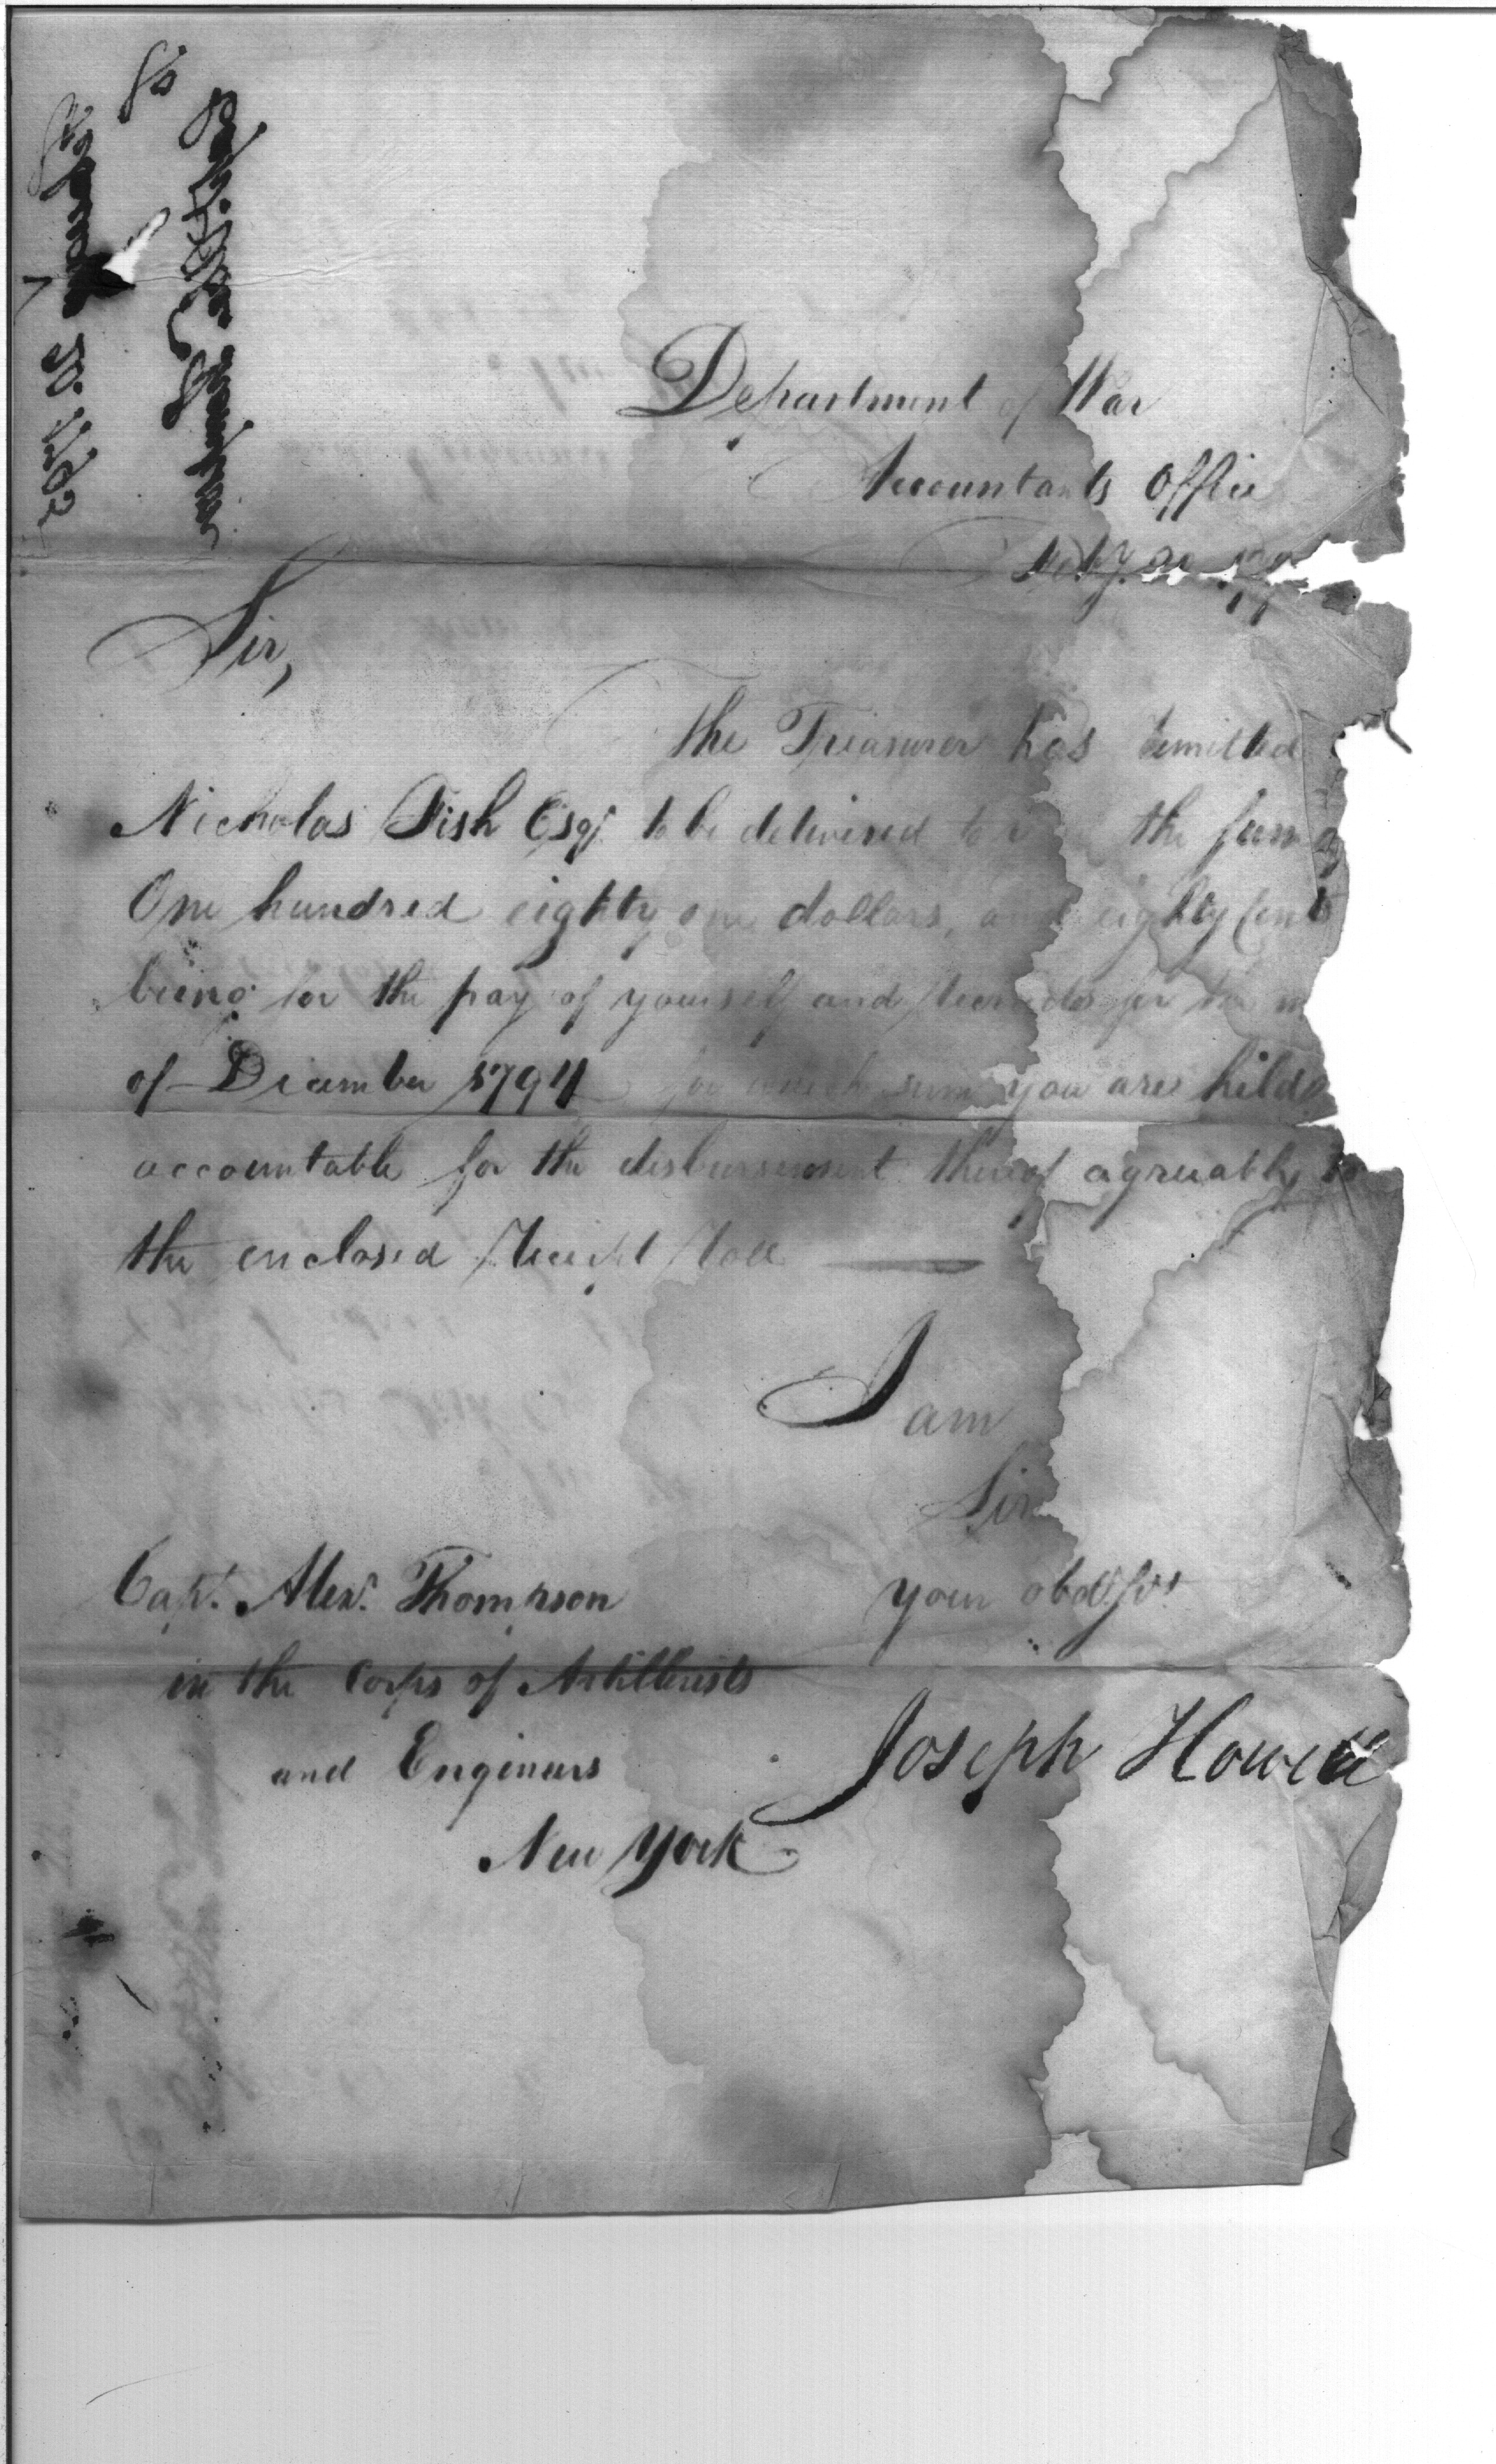 Department of War
Accountants Office
Sir,
The Treasurer has remitted
Nicholas Fish Esqr. to be delivered to the sum of
One hundred eighty one dollars, and eighty Cents
being for the pay of yourself and for the
of December 1794 for which sum you are held
accountable for the disbursement thereof agreeably to
the enclosed Receipt Roll
I am
Sir
your obdt. Sert
Capt. Alexr. Thompson
in the Corps of Artillerists
and Engineers
New York
Joseph Howell